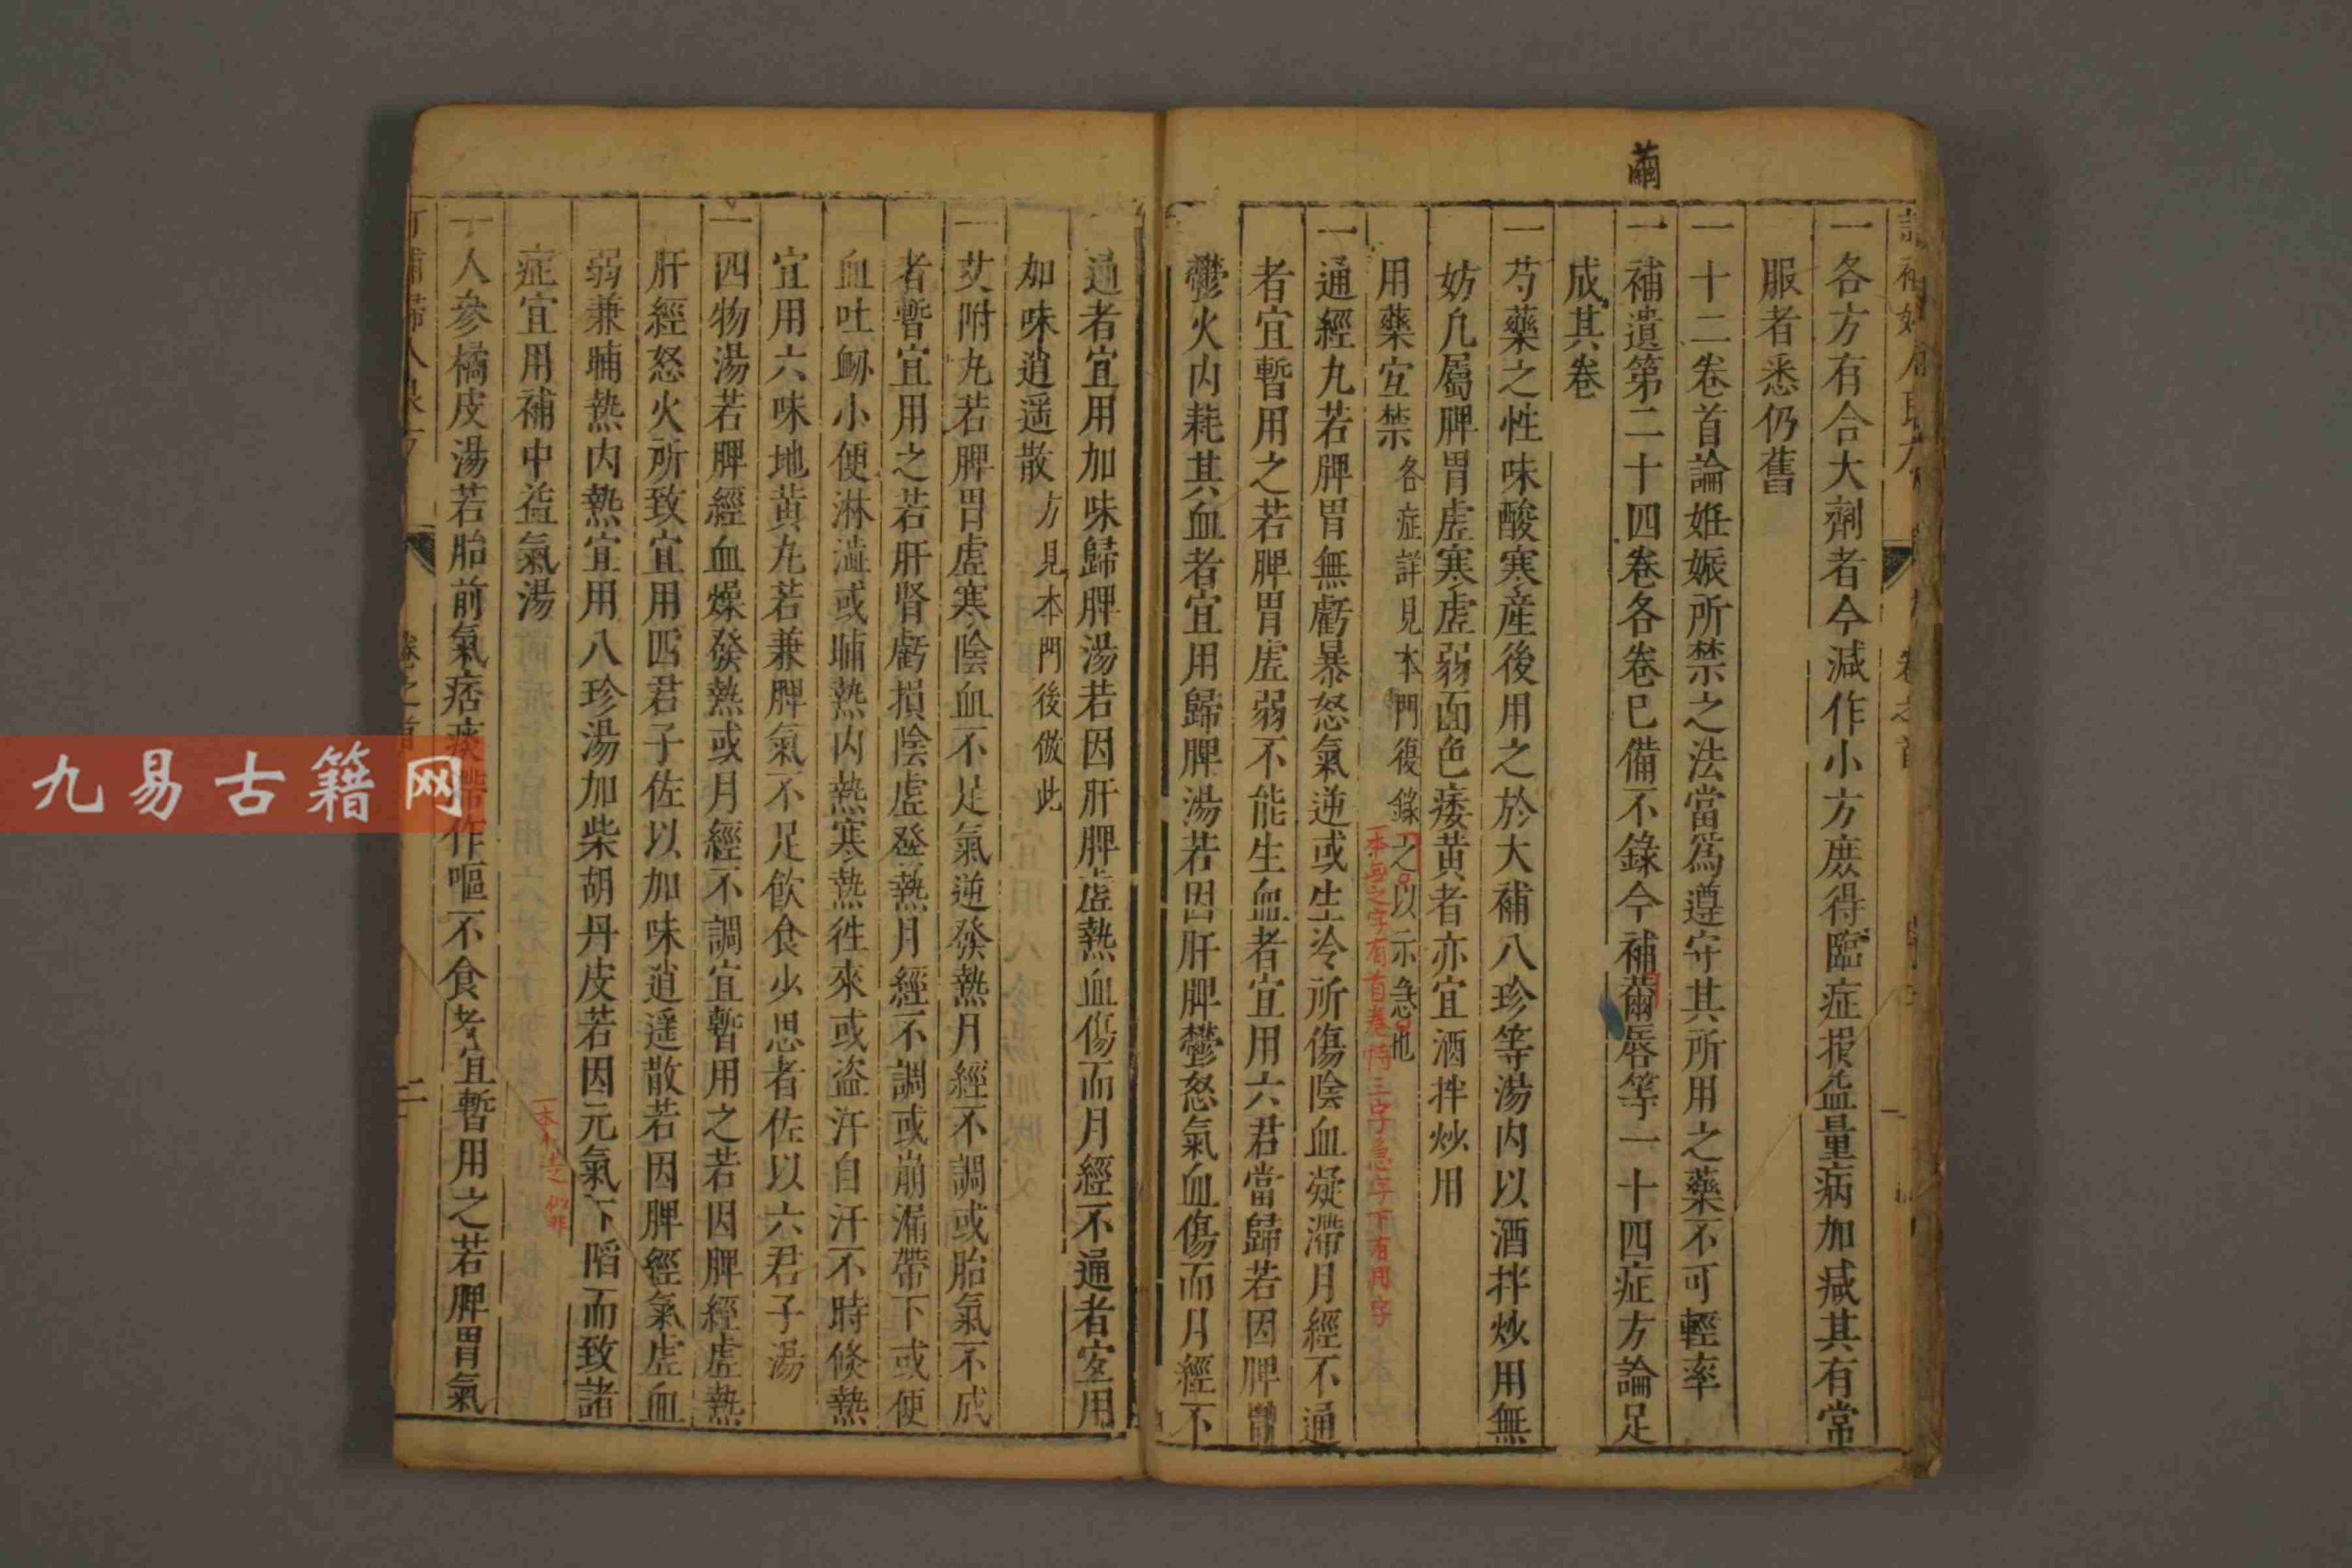 繭
一各方有合大劑者今減作小方庶得臨症損益量病加減其有常
服者悉仍舊
一十二卷首論姙娠所禁之法當爲遵守其所用之藥不可輕率
一補遺第二十四卷各卷已備不錄今補薾唇等一十四症方論足
成其卷
一芍藥之性味酸寒産後用之於大補八珍等湯内以酒拌炒用無
妨凡屬脾胃虚寒虚弱面色痿黄者亦宜酒拌炒用
用藥宜禁各症詳見本門復錄之以示急也
一本無之字有首卷恃三字急字下有用字
一通經丸若脾胃無虧暴怒氣逆或生冷所傷陰血凝滯月經不通
者宜暫用之若脾胃虚弱不能生血者宜用六君當歸若因脾胃
鬱火内耗其血者宜用歸脾湯若因肝脾鬱怒氣血傷而月經不
通者宜用加味歸脾湯若因肝脾虚熱血傷而月經不通者宜用
加味逍遥散方見本門後倣此
一艾附丸若脾胃虚寒陰血不足氣逆發熱月經不調或胎氣不成
者暫宜用之若肝腎虧損陰虚發熱月經不調或崩漏帶下或便
血吐衂小便淋澁或晡熱内熱寒熱徃來或盗汗自汗不時倏熱
宜用六味地黄丸若兼脾氣不足飲食少思者佐以六君子湯
一四物湯若脾經血燥發熱或月經不調宜暫用之若因脾經虚熱
肝經怒火所致宜用四君子佐以加味逍遥散若因脾經氣虚血
弱兼晡熱内熱宜用八珍湯加柴胡丹皮若因元氣下陷而致諸
症宜用補中益氣湯
一人參橘皮湯若胎前氣痞痰滯作嘔不食者宜暫用之若脾胃氣
卷之首
二
九易古籍网